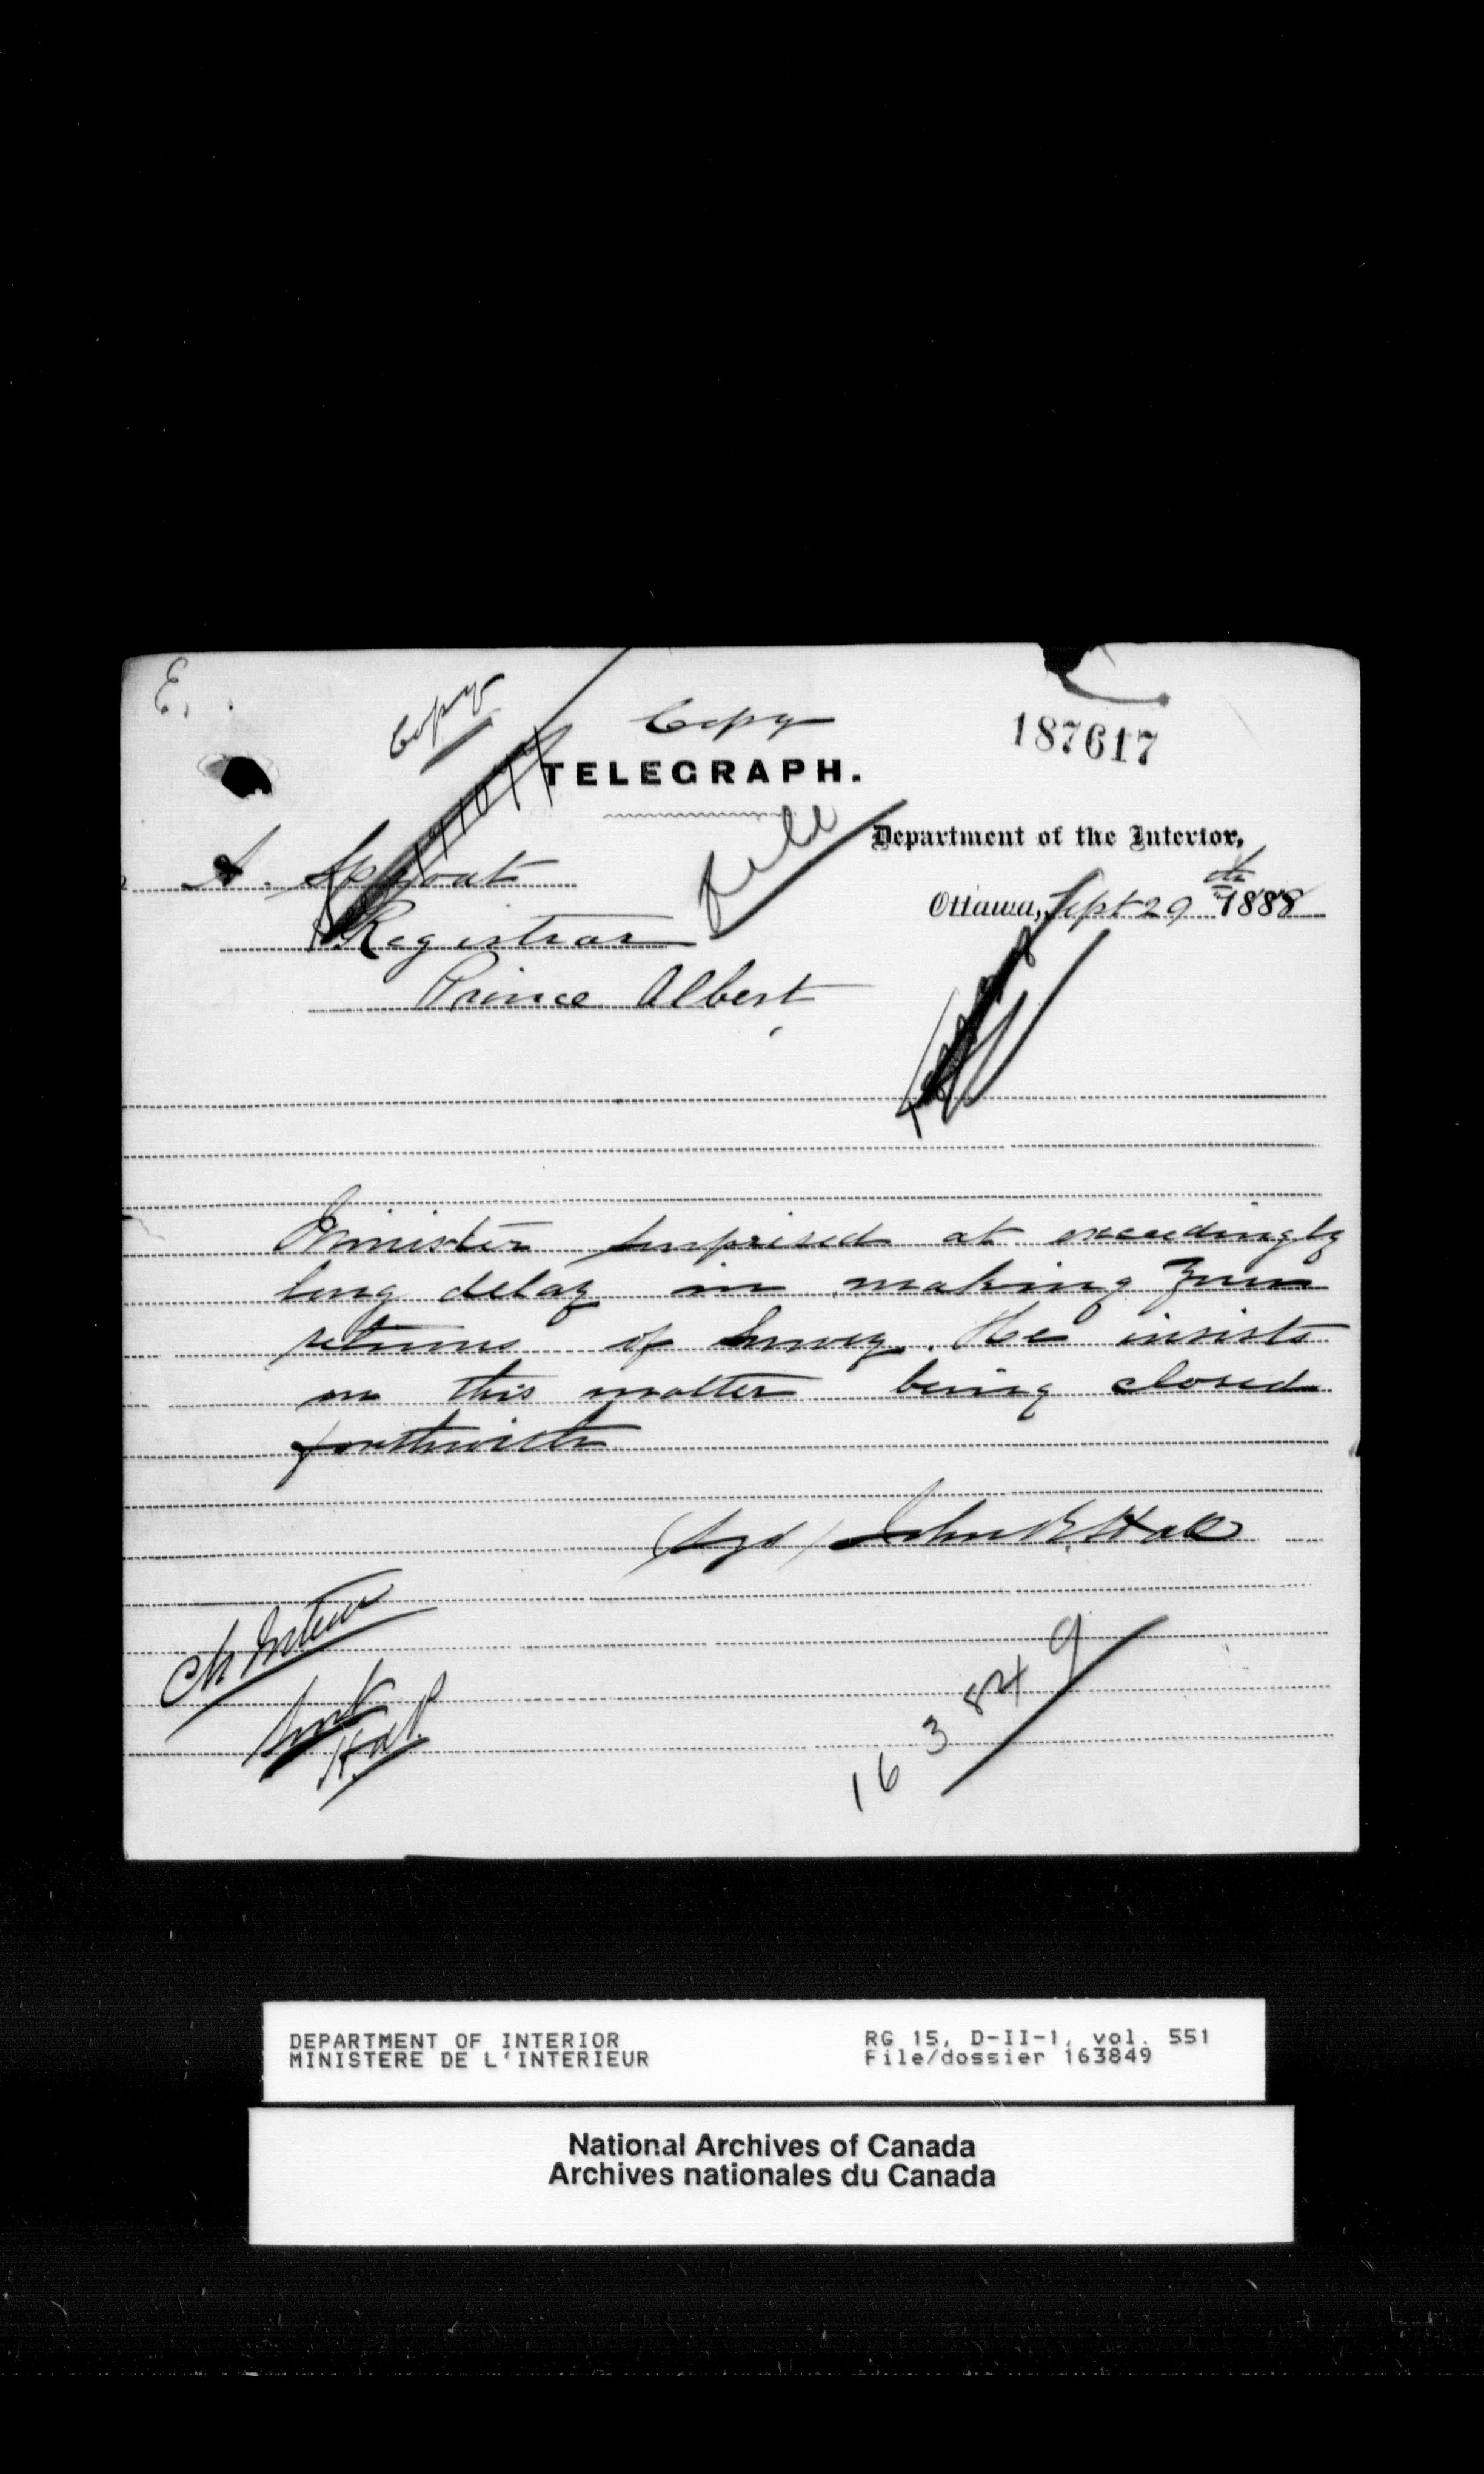 E.
Copy
Copy
187617
TELEGRAPH.
File
Department of the Interior,
A. Sproat
Ottawa, Sept 29th 1888
Registrar
Prince Albert
Minister surprised at exceedingly
long delay in making your
returns of survey. He insists
on this matter being closed
forthwith
(Sgd) John R. Hall
163849
DEPARTMENT OF INTERIOR
MINISTERE DE L'INTERIEUR
RG 15, D-II-1, vol. 551
File/dossier 163849
National Archives of Canada
Archives nationales du Canada